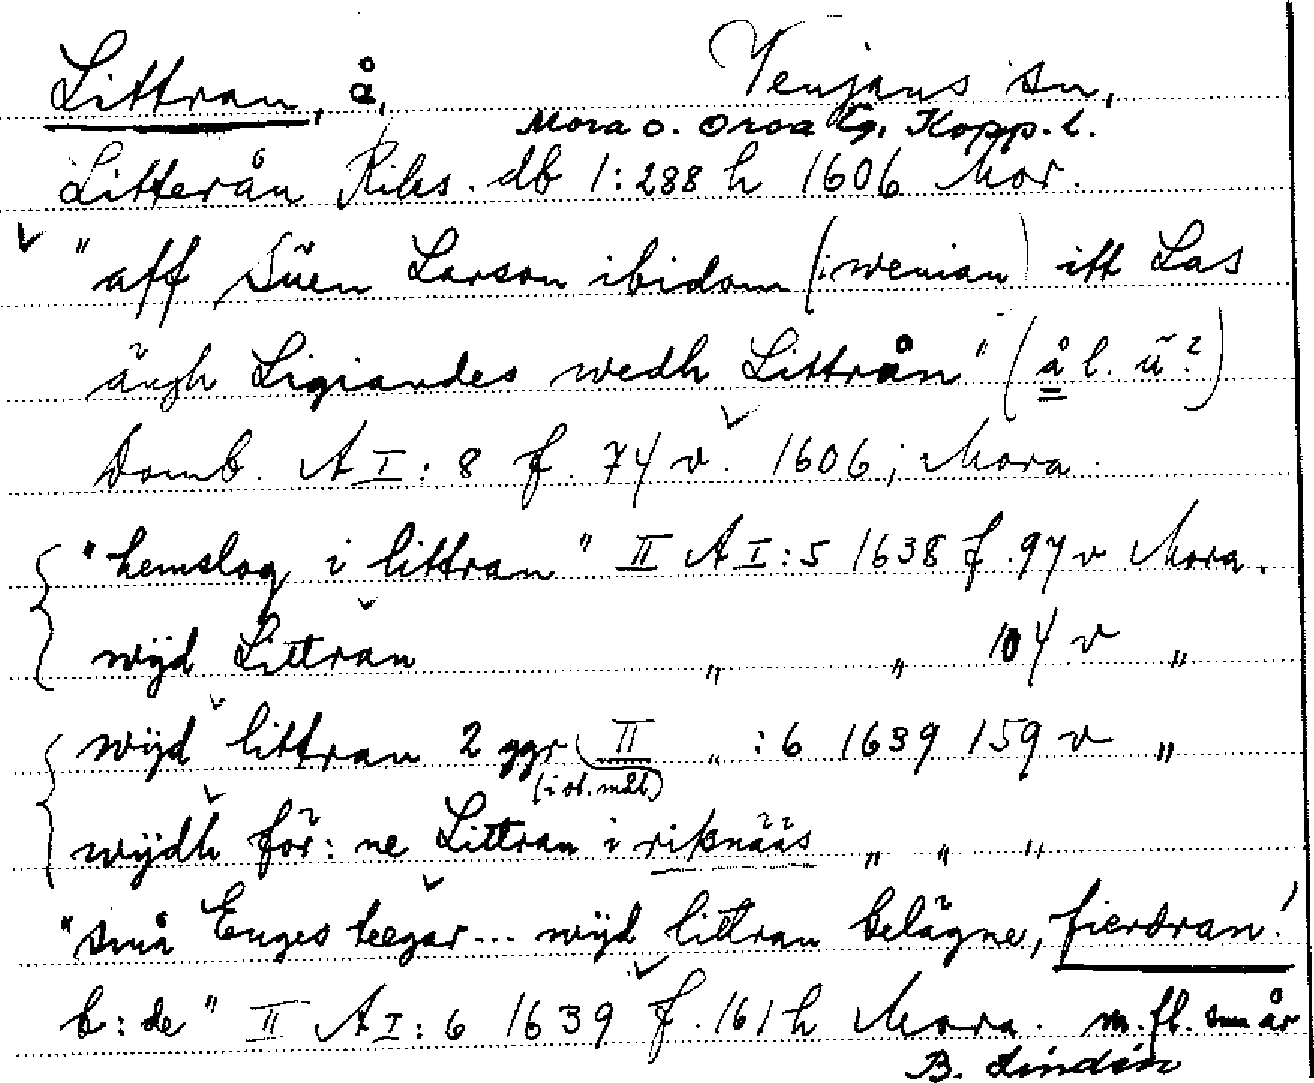 Littran, å,
Venjans sn,
Mora o. Orsa tg. Kopp. l.
Litterån Riks. db 1:288 h 1606 Mor.
" aff Süen Larson ibidom (i wenian) itt Las
ängh Ligiandes wedh Littrån " (å l. ü?)
Domb. A I : 8 f. 74 v. 1606; Mora.
"hemslog i littran " II A I : 5 1638 f. 97 v Mora.
wijd Littran " " 104 v "
wijd littran 2 ggr II " : 6 1639 159 v "
wijdh för: ne Littran i riknääs " " "
"små Enges teegar... wijd littran belägne, fierdran!
b: de " II A I : 6 1639 f. 161 h Mora. m. fl. sm år
B. Lindén